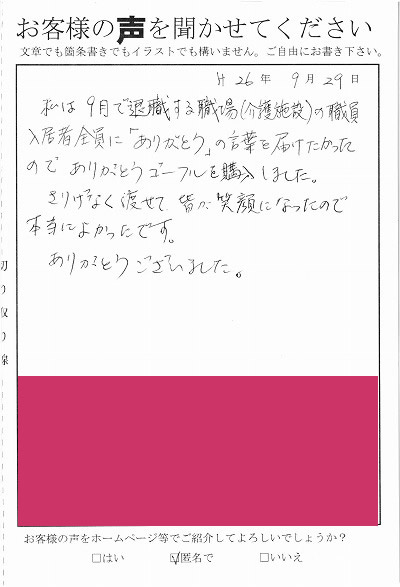 お客様の声を聞かせてください
文章でも箇条書きでもイラストでも構いません。ご自由にお書き下さい。
H 26年 9月 29日
私は9月で退職する職場(介護施設)の職員
入居者全員に「ありがとう」の言葉を届けたかった
ので ありがとうゴーフルを購入しました。
さりげなく渡せて 皆が 笑顔になったので
本当によかったです。
ありがとうございました。
切り取り線
お客様の声をホームページ等でご紹介してよろしいでしょうか?
□はい ☑匿名で □いいえ